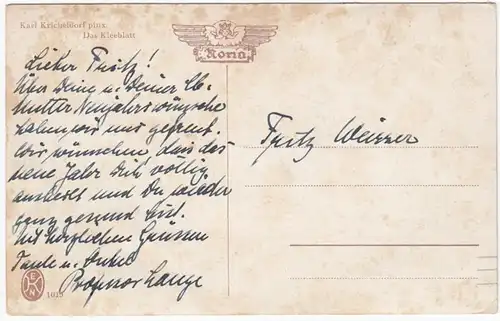 Karl Kricheldorf pinx.
Das Kleeblatt
Rona
Lieber Fritz!
Über Deine u. Deiner
Mutter Neujahrswünsche
haben wir uns gefreut.
Wir wünschen, dass das
neue Jahr Dich völlig
ausheilt und Du wieder
ganz gesund bist.
Mit herzlichen Grüssen
Tante u. Onkel
Professor Lange
Fritz Weisser
1015